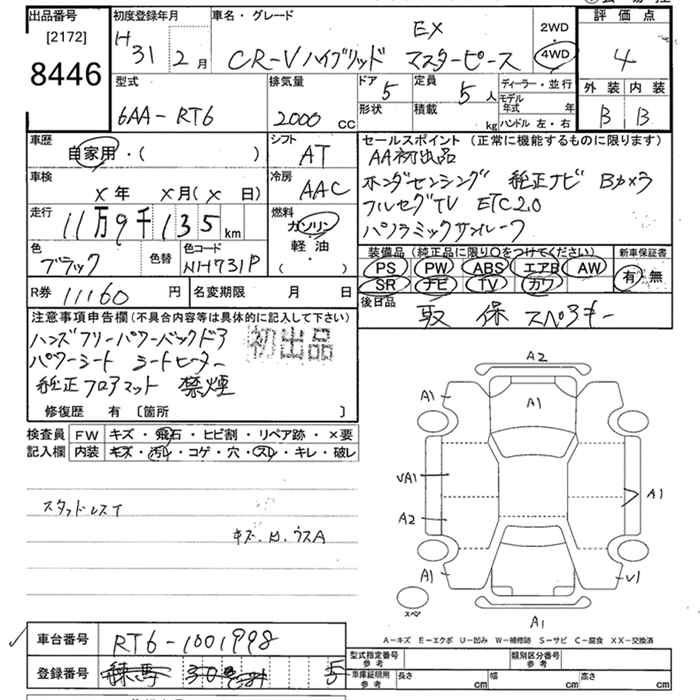 出品番号
[2172]
8446
初度登録年月
H31 2月
車名・グレード
CR-V ハイブリッド EX マスターピース
2WD
4WD
評価点
4
外装 内装
B B
型式
6AA-RT6
排気量
2000 cc
ドア 5
定員 5人
形状
積載 kg
ディーラー・並行
モデル年式 年
ハンドル 左・右
車歴
自家用・( )
シフト
AT
車検
×年 ×月(×日)
冷房
AAC
走行
11万9千135km
燃料
ガソリン
軽・油
・( )
色
ブラック
色替
色コード
NH731P
R券 11160円
名変期限 月 日
セールスポイント (正常に機能するものに限ります)
AA初出品
ホンダセンシング 純正ナビ Bカメラ
フルセグTV ETC2.0
パノラミックサンルーフ
装備品 (純正品に限り○をつけてください)
PS PW ABS エアB AW
SR ナビ TV カワ
新車保証書
有・無
後日品
取 保 スペアキー
注意事項申告欄 (不具合内容等は具体的に記入して下さい)
ハンズフリーパワーバックドア
パワーシート シートヒーター
純正フロアマット 禁煙
初出品
修復歴 有 〔箇所 〕
検査員記入欄
FW キズ・飛石・ヒビ割・リペア跡・×要
内装 キズ・汚レ・コゲ・穴・スレ・キレ・破レ
スタッドレスT
キズ.H.ウスA
A2
A1
A1
VA1
A2
A1
A1
V1
A1
スペア
A-キズ E-エクボ U-凹み W-補修跡 S-サビ C-腐食 XX-交換済
車台番号 RT6-1001998
登録番号 練馬 5
型式指定番号 参考
類別区分番号 参考
車庫証明用 参考
長さ cm
幅 cm
高さ cm